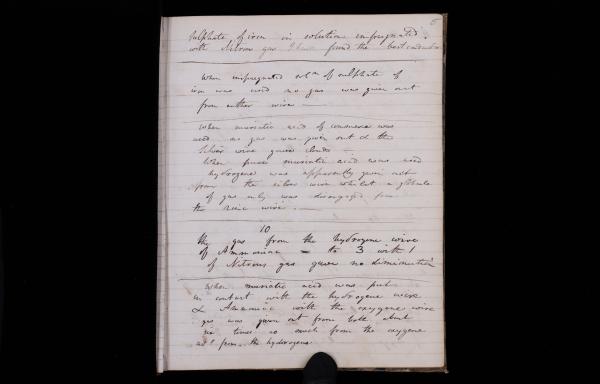 6
Sulphate of iron in solution impregnated
with Nitrous gas I have found the best conductor
When impregnated soln of sulphate of
iron was used no gas was given out
from either wire —
When muriatic acid of commerce was
used no gas was given out & the
silver wire gave clouds —
When pure muriatic acid was used
hydrogene was apparently given out
from the silver wire whilst a globule
of gas only was disengaged from
the zinc wire. —
10
the gas from the hydrogene wire
of Ammoniac — to 3 with 1
of Nitrous gas gave no diminution
When muriatic acid was put
in contact with the hydrogene wire
& Ammoniac with the oxygene wire
gas was given out from both about
six times as much from the oxygene
as from the hydrogene